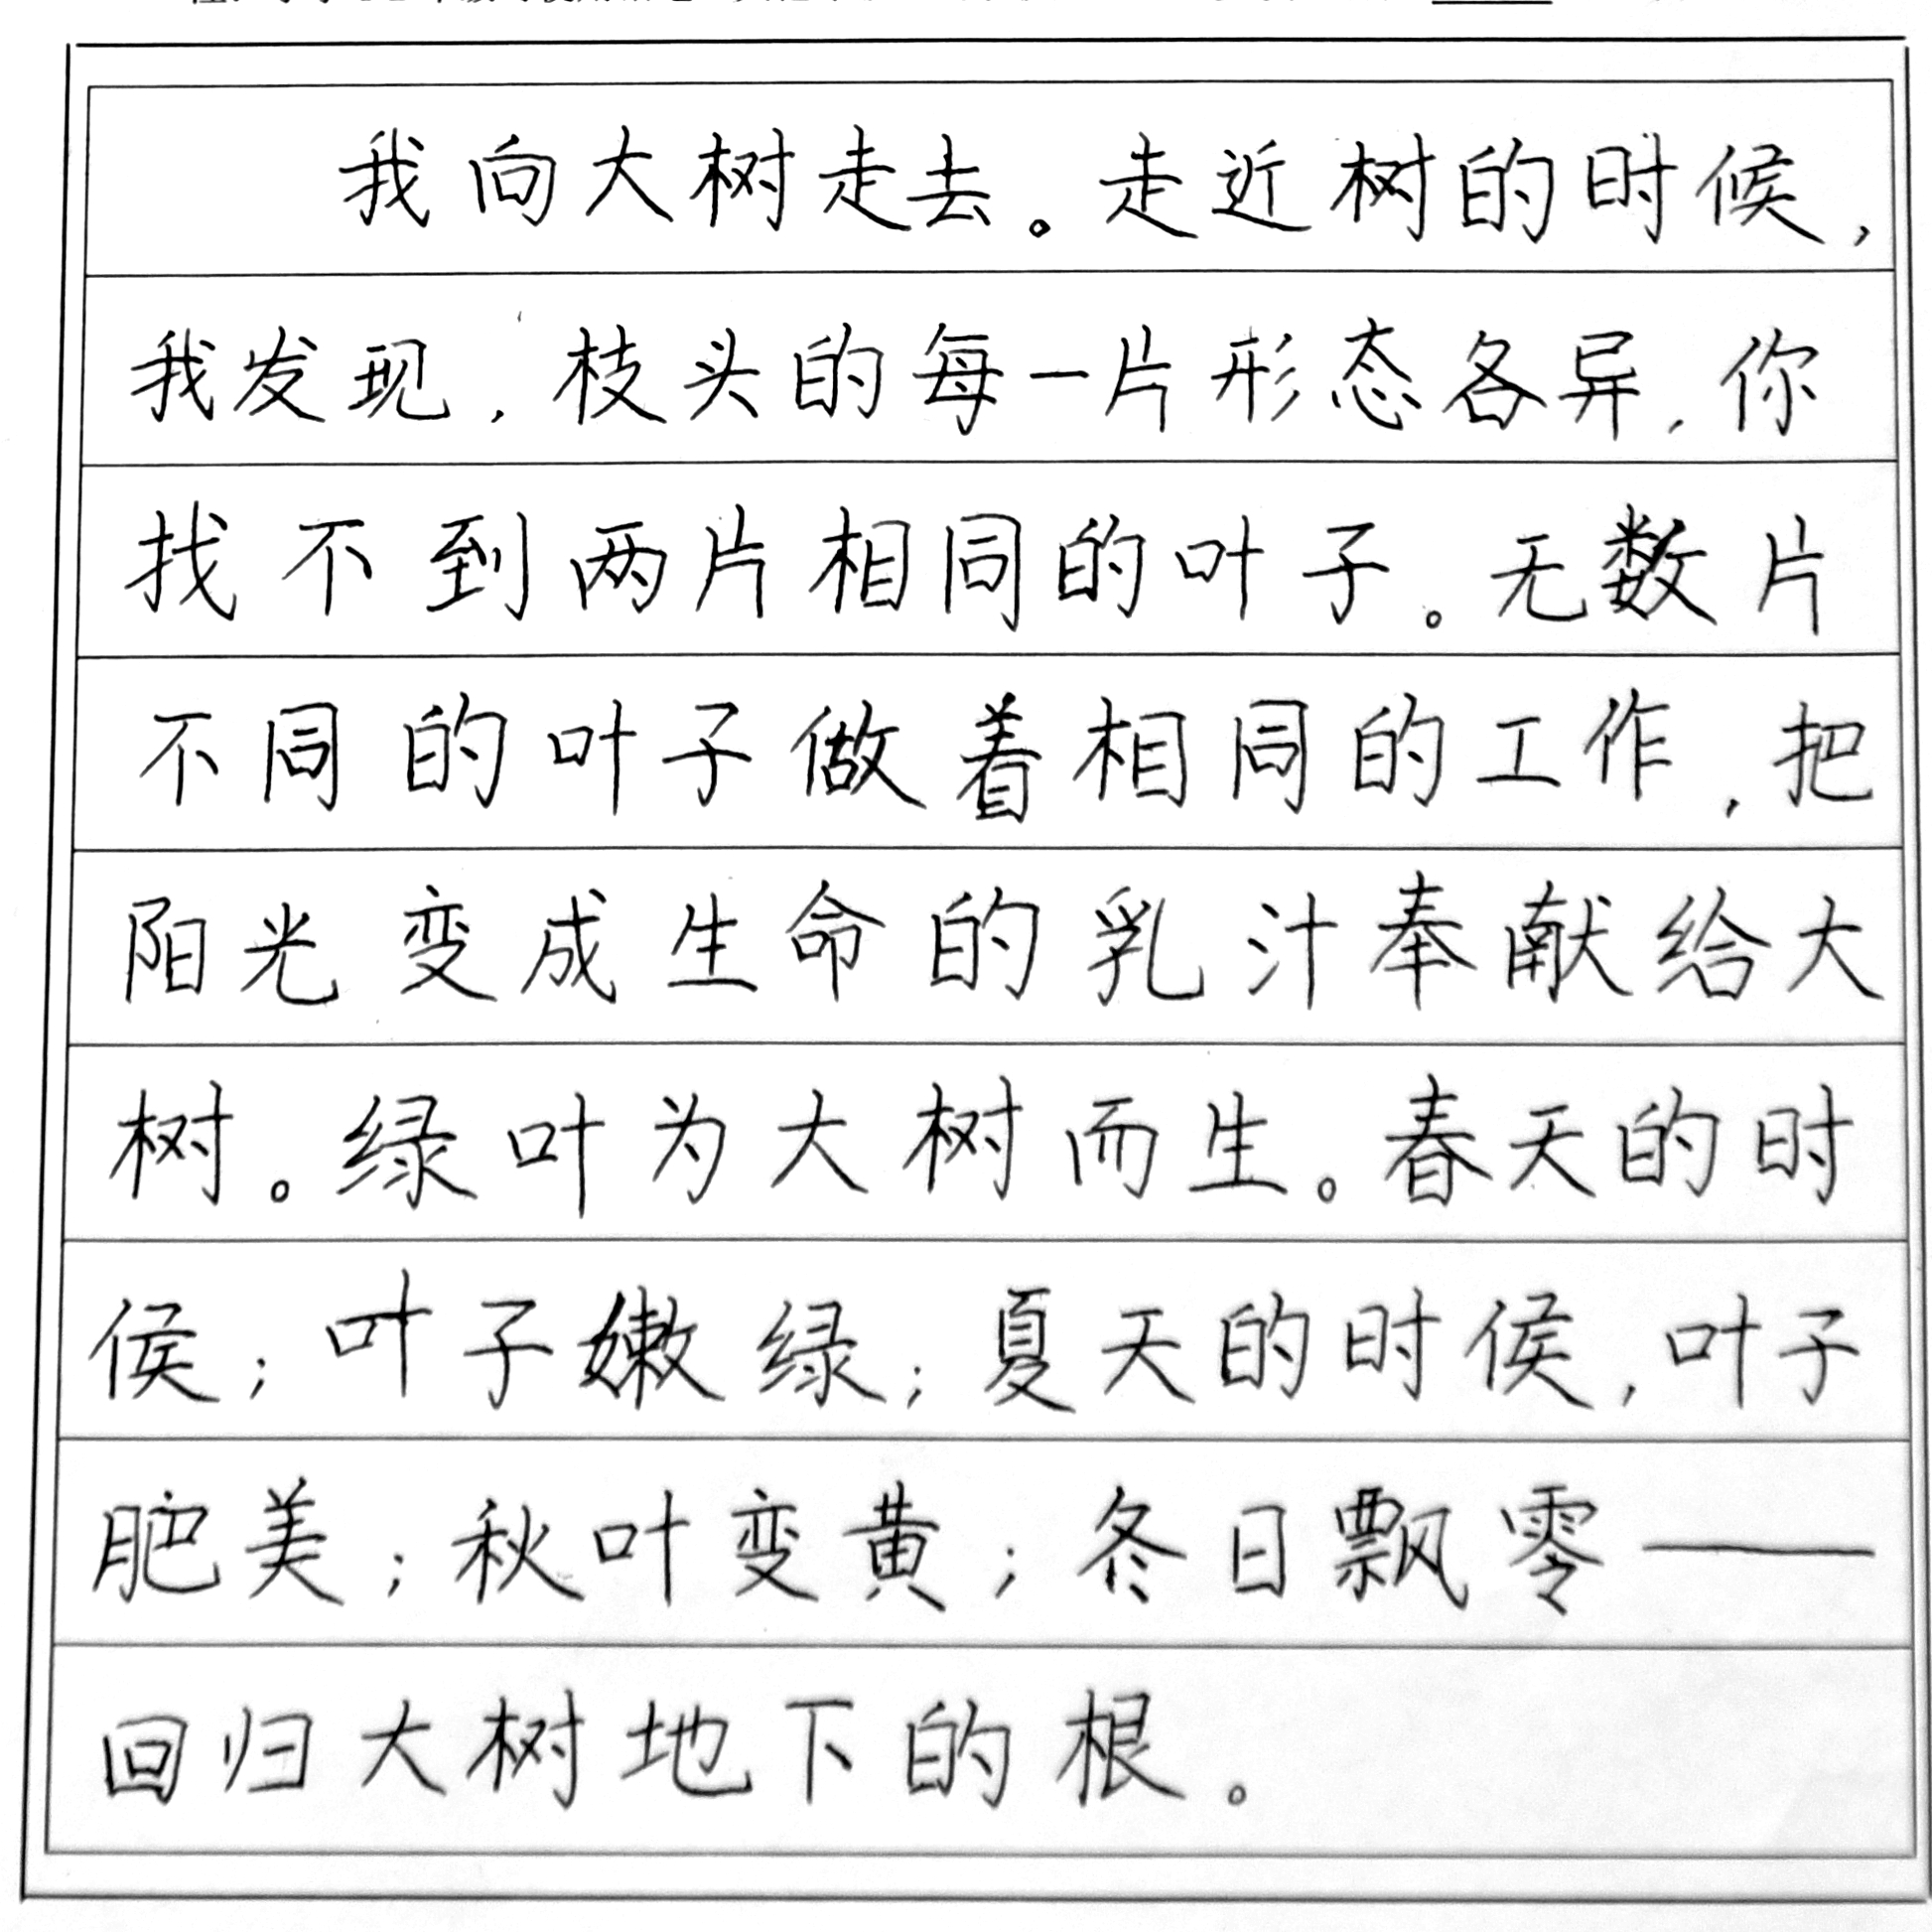 我向大树走去。走近树的时候,
我发现,枝头的每一片形态各异,你
找不到两片相同的叶子。无数片
不同的叶子做着相同的工作,把
阳光变成生命的乳汁奉献给大
树。绿叶为大树而生。春天的时
侯;叶子嫩绿;夏天的时侯,叶子
肥美;秋叶变黄;冬日飘零——
回归大树地下的根。